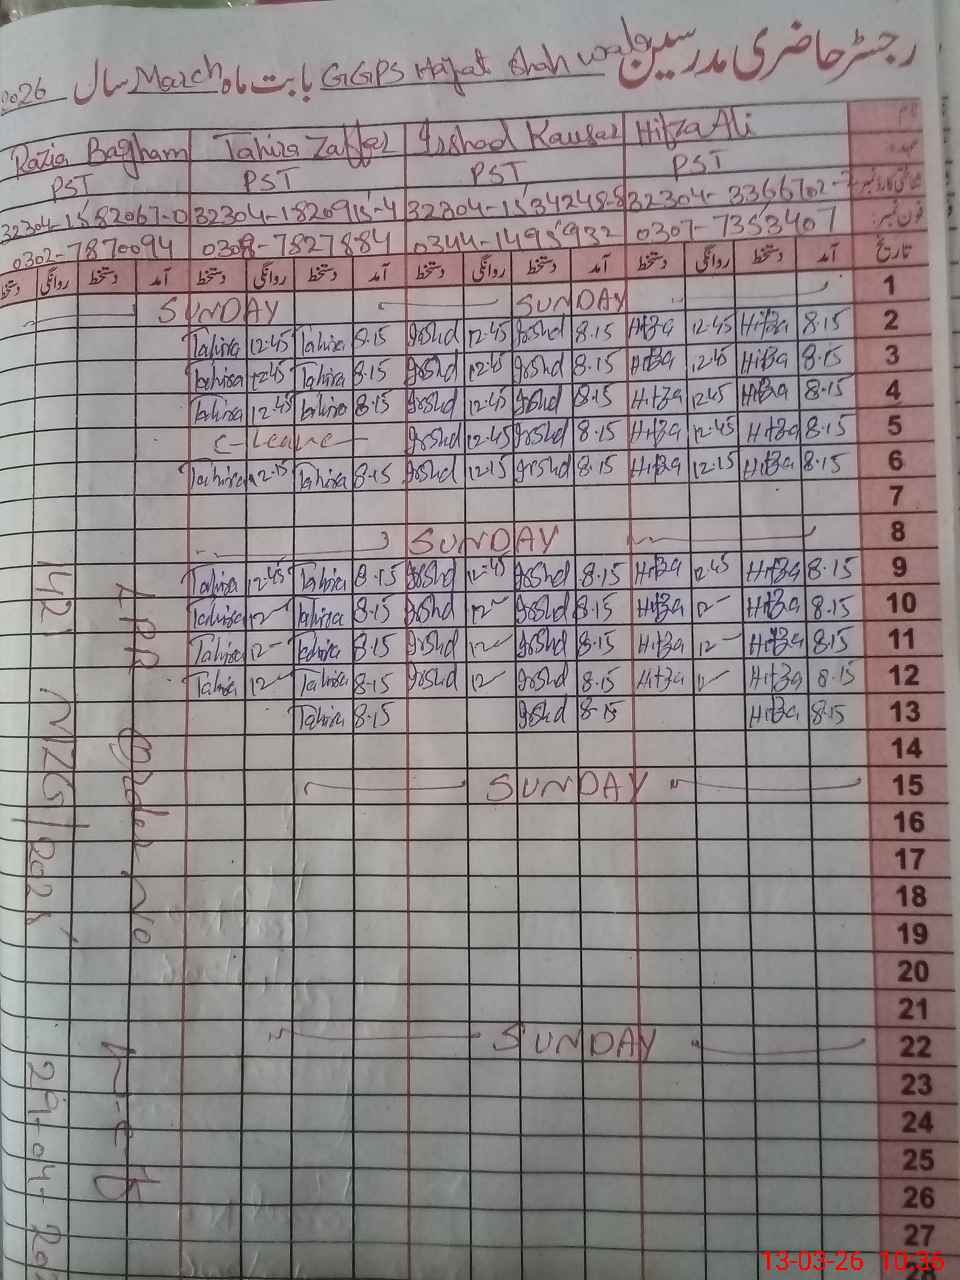 رجسٹر حاضری مدرسین GGPS Hayat Shah Wala بابت ماہ March سال 2026
نام Hifza Ali Irshad Kausar Tahira Zaffar Razia
عہدہ PST PST PST PST
32304-1534248-8 32304-1820915-4 32304-1582067-0
فون نمبر: 0307-7353407 0344-1495932 0302-7870094
تاریخ آمد دستخط روانگی دستخط آمد دستخط روانگی دستخط آمد دستخط روانگی دستخط آمد دستخط روانگی دستخط
1 SUNDAY SUNDAY
2 8.15 Hifza 12.45 Hifza 8.15 Irshd 12.45 Irshd 8.15 Tahira 12.45 Tahira
3 8.15 Hifza 12.45 Hifza 8.15 Irshd 12.45 Irshd 8.15 Tahira 12.45 Tahira
4 8.15 Hifza 12.45 Hifza 8.15 Irshd 12.45 Irshd 8.15 Tahira 12.45 Tahira
5 8.15 Hifza 12.45 Hifza 8.15 Irshd 12.45 Irshd C-Leave
6 8.15 Hifza 12.15 Hifza 8.15 Irshd 12.15 Irshd 8.15 Tahira 12.15 Tahira
7
8 SUNDAY
9 8.15 Hifza 12.45 Hifza 8.15 Irshd 12.45 Irshd 8.15 Tahira 12.45 Tahira
10 8.15 Hifza 12 Hifza 8.15 Irshd 12 Irshd 8.15 Tahira 12 Tahira
11 8.15 Hifza 12 Hifza 8.15 Irshd 12 Irshd 8.15 Tahira 12 Tahira
12 8.15 Hifza Hifza 8.15 Irshd 12 Irshd 8.15 Tahira 12 Tahira
13 8.15 Hifza 8.15 Irshd 8.15 Tahira
14
15 SUNDAY
16
17
18
19
20
21
22 SUNDAY
23
24
25
26
27
28
LPR Order No
13-03-26 10:36